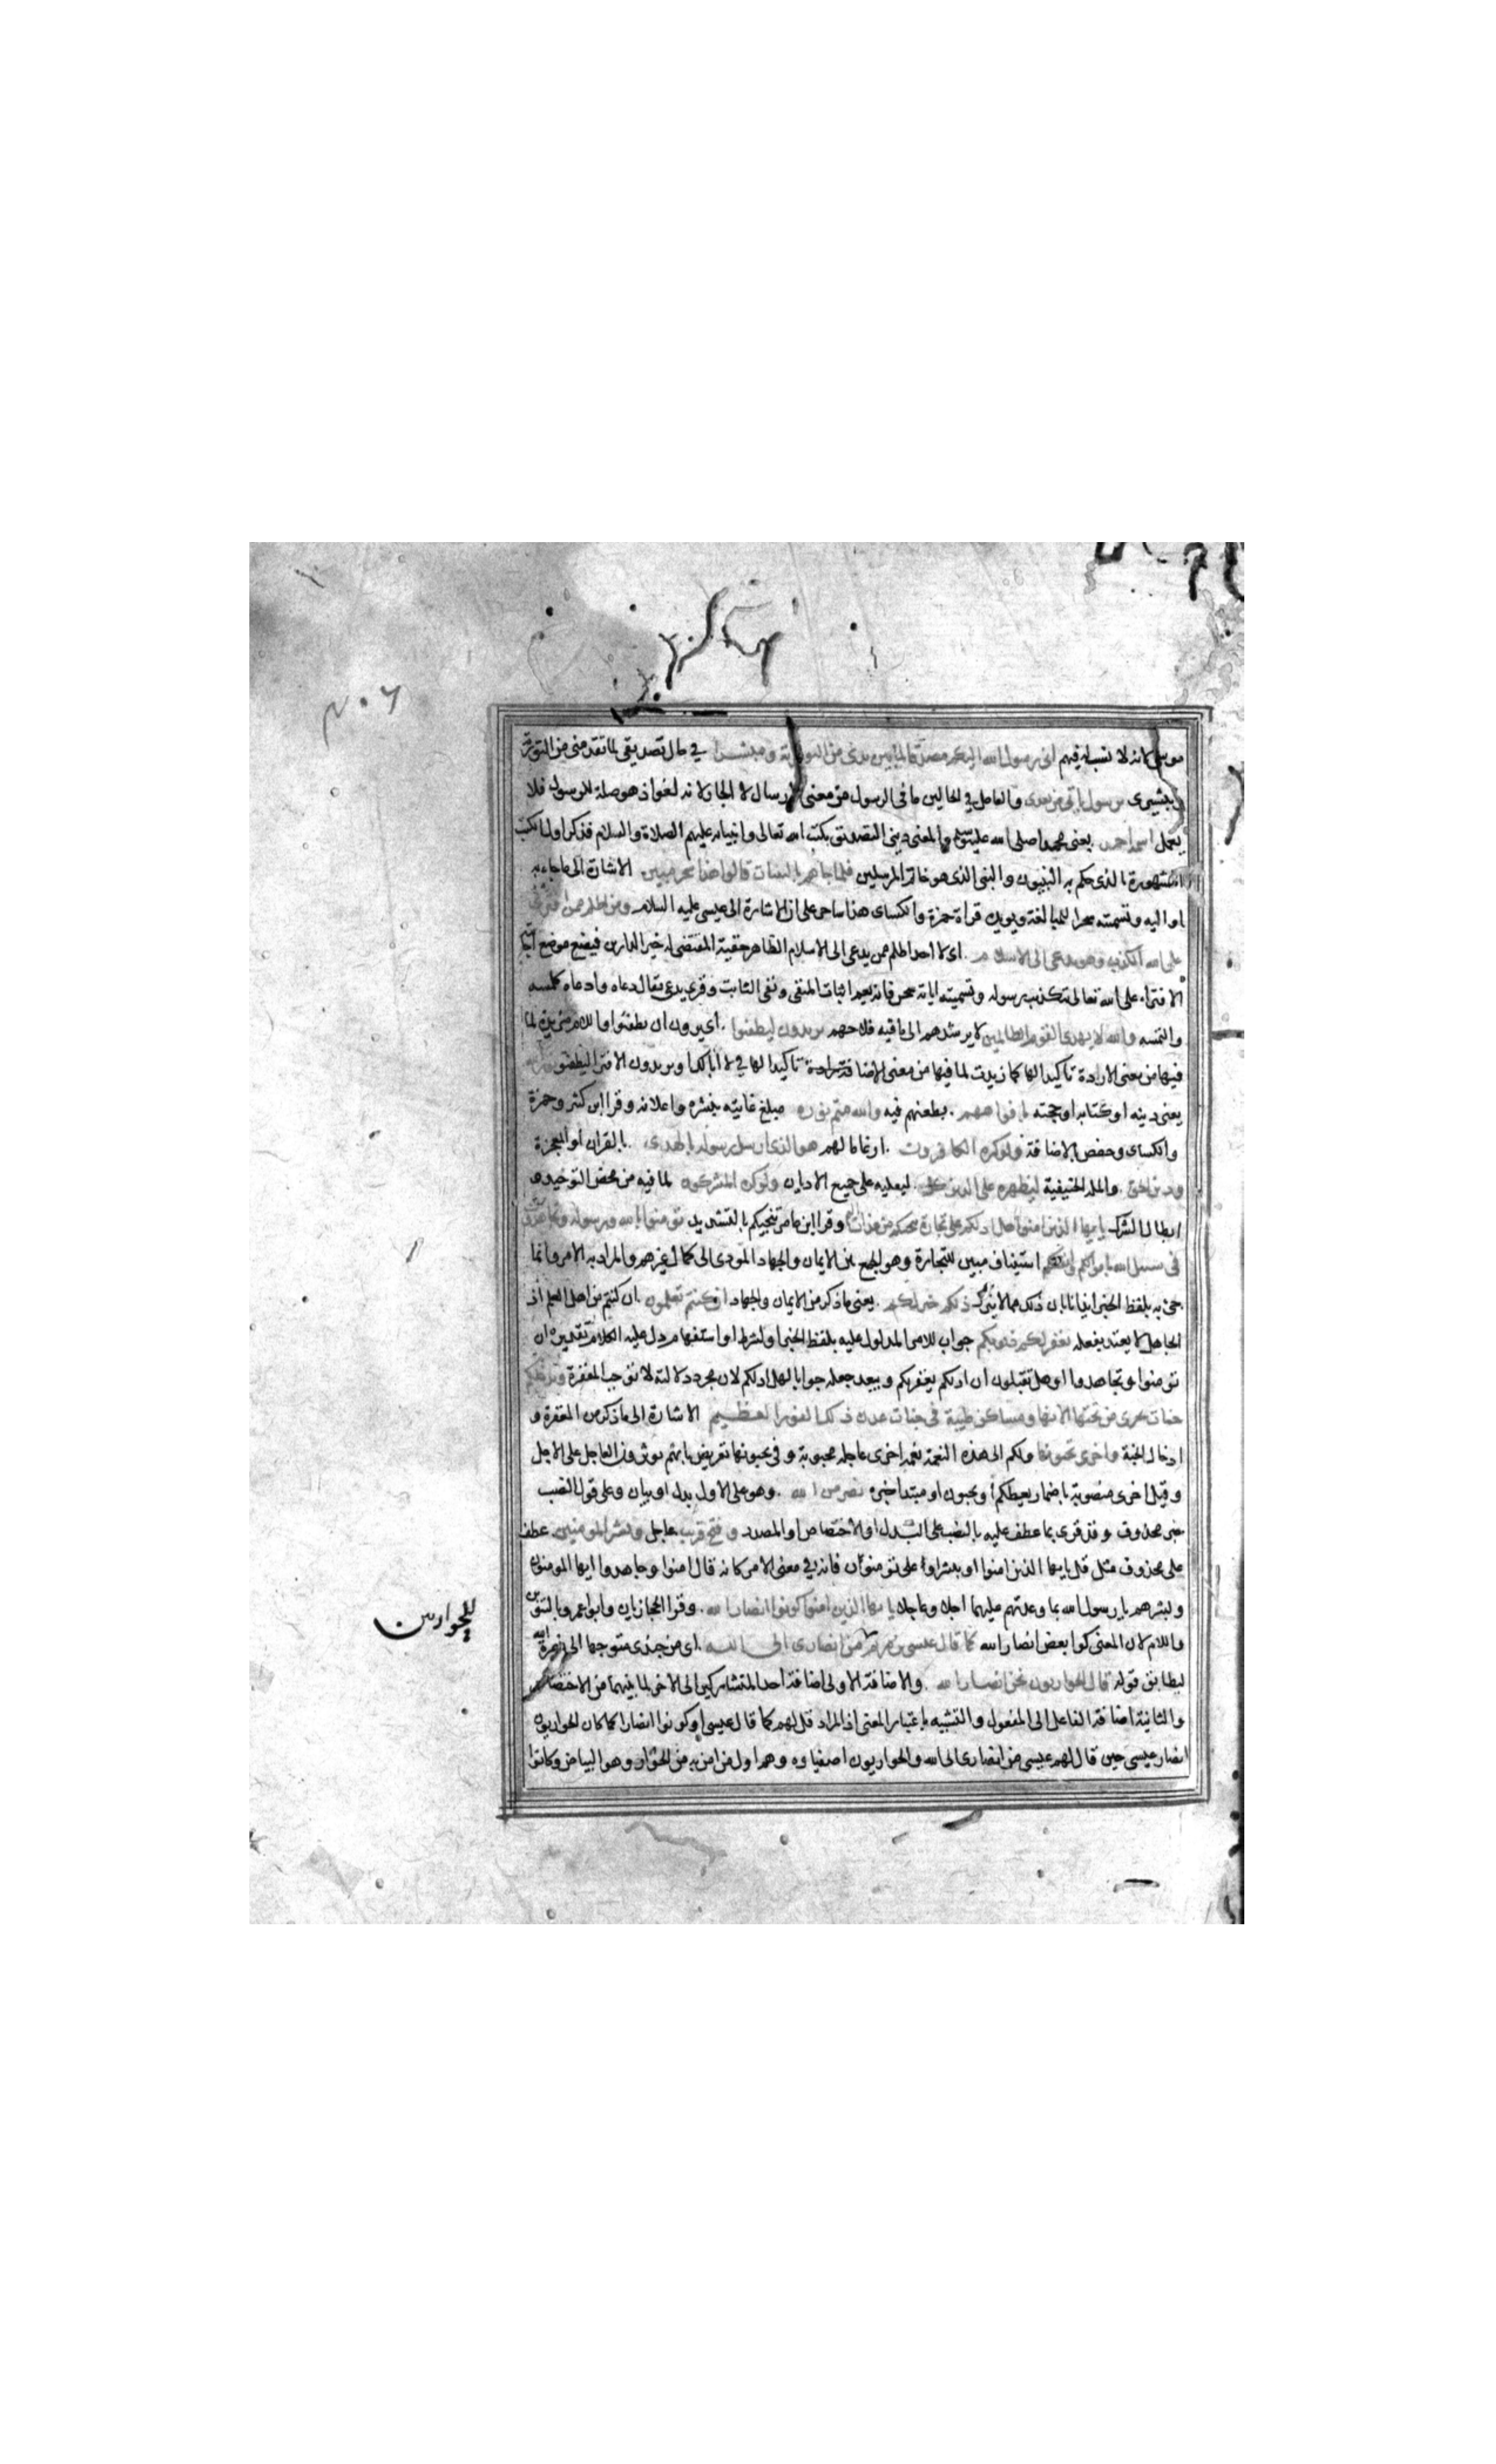 ٢٠٦
موسى لانه لا نسب له فيهم انى رسول الله اليكم مصدقا لما بين يدى من التورية ومبشرا في حال تصديقى لما تقدمنى من التورية
وتبشيرى برسول ياتى من بعدى والعامل في الحالين ما فى الرسول من معنى الارسال لا الجار لانه لغو اذ هو صلة للرسول فلا
يعمل اسمه احمد يعنى محمدا صلى الله عليه والمعنى دينى التصديق بكتب الله تعالى وانبيائه عليهم الصلاة والسلام فذكر اول الكتب
المشهورة الذى حكم به النبيون والنبى الذى هو خاتم المرسلين فلما جاهم بالبينات قالوا هذا سحر مبين الاشارة الى ما جاء به
او اليه وتسميته سحرا للمبالغة ويويده قراة حمزة والكساى هذا ساحر على ان الاشارة الى عيسى عليه السلام ومن اظلم ممن افترى
على الله الكذب وهو يدعى الى الاسلام اى لا احد اظلم ممن يدعى الى الاسلام الظاهر حقيته المقتضى له خير الدارين فيضع موضع اجابته
الافتراء على الله تعالى بتكذيب رسوله وتسميته اياته سحرا فانه يعم اثبات المنفى ونفى الثابت وقرى يدعى يقال دعاه وادعاه كلمسه
والتمسه والله لا يهدى القوم الظالمين لا يرشدهم الى ما فيه فلاحهم يريدون ليطفئوا اى يريدون ان يطفئوا واللام مزيدة لما
فيها من معنى الارادة تاكيدا لها كما زيدت لما فيها من معنى الاضافة تاكيدا لها في لا ابا لك او يريدون الافترا ليطفئوا نور الله
يعنى دينه او كتابه او حجته بافواههم بطعنهم فيه والله متم نوره مبلغ غايته بنشره واعلائه وقرا ابن كثير وحمزة
والكساى وحفص بالاضافة ولو كره الكافرون ارغاما لهم هو الذى ارسل رسوله بالهدى بالقران او المعجزة
ودين الحق والملة الحنيفية ليظهره على الدين كله ليعليه على جميع الاديان ولو كره المشركون لما فيه من محض التوحيد و
ابطال الشرك يا يها الذين امنوا هل ادلكم على تجارة تنجيكم من عذاب اليم وقرا ابن عامر تنجيكم بالتشديد تومنون بالله ورسوله وتجاهدون
فى سبيل الله باموالكم وانفسكم استيناف مبين للتجارة وهو الجمع بين الايمان والجهاد المودى الى كمال غيرهم والمراد به الامر وانما
جئ به بلفظ الخبر ايذانا بان ذلك مما لا يترك ذلكم خير لكم يعنى ما ذكر من الايمان والجهاد ان كنتم تعلمون ان كنتم من اهل العلم اذ
الجاهل لا يعتد بفعله يغفر لكم ذنوبكم جواب للامر المدلول عليه بلفظ الخبر او لشرط او استفهام دل عليه الكلام تقديره ان
تومنوا وتجاهدوا او هل تقبلون ان ادلكم يغفر لكم ويبعد جعله جوابا لهل ادلكم لان مجرد دلالته لا توجب المغفرة ويدخلكم
جنات تجرى من تحتها الانهار ومساكن طيبة فى جنات عدن ذلك الفوز العظيم الاشارة الى ما ذكر من المغفرة و
ادخال الجنة واخرى تحبونها ولكم الى هذه النعمة نعمة اخرى عاجلة محبوبة وفى تحبونها تعريض بانهم يوثرون العاجل على الاجل
وقيل اخرى منصوبة باضمار يعطكم او تحبون او مبتدا خبره نصر من الله وهو على الاول بدل او بيان وعلى قول النصب
خبر محذوف وقد قرى بما عطف عليه بالنصب على البدل او الاختصاص او المصدر وفتح قريب عاجل وبشر المومنين عطف
على محذوف مثل قل يايها الذين امنوا او بشر او على تومنون فانه في معنى الامر كانه قال امنوا وجاهدوا ايها المومنون
وبشرهم يا رسول الله بما وعدتهم عليهما اجلا وعاجلا يا يها الذين امنوا كونوا انصار الله وقرا الحجازيان وابو عمرو بالتنوين
واللام لان المعنى كونوا بعض انصار الله كما قال عيسى بن مريم للحواريين من انصارى الى الله اى من جندى متوجها الى نصرة الله
ليطابق قوله قال الحواريون نحن انصار الله والاضافة الاولى اضافة احد المتشاركين الى الاخر لما بينهما من الاختصاص
والثانية اضافة الفاعل الى المفعول والتشبيه باعتبار المعنى اذ المراد قل لهم كما قال عيسى او كونوا انصارا كما كان الحواريون
انصار عيسى حين قال لهم عيسى من انصارى الى الله والحواريون اصفياوه وهم اول من امن به من الحوار وهو البياض وكانوا
للحواريين